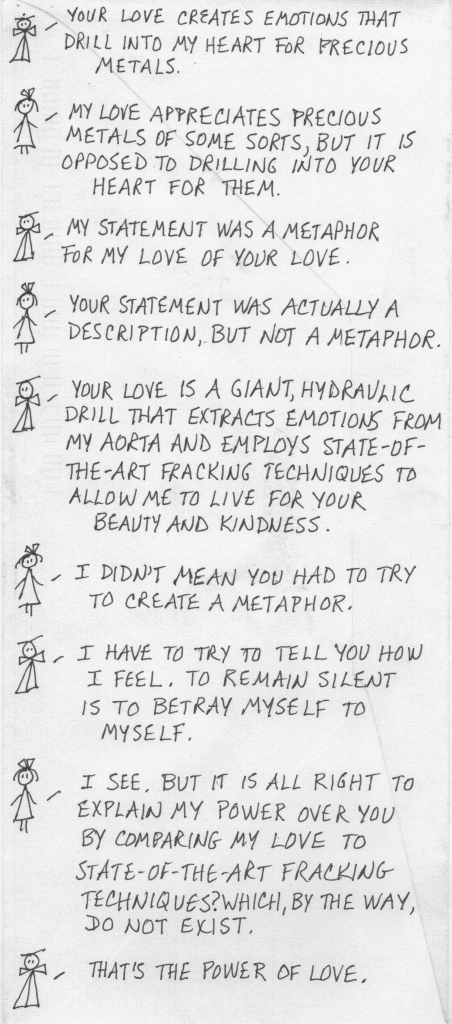 YOUR LOVE CREATES EMOTIONS THAT
DRILL INTO MY HEART FOR PRECIOUS
METALS.
MY LOVE APPRECIATES PRECIOUS
METALS OF SOME SORTS, BUT IT IS
OPPOSED TO DRILLING INTO YOUR
HEART FOR THEM.
MY STATEMENT WAS A METAPHOR
FOR MY LOVE OF YOUR LOVE.
YOUR STATEMENT WAS ACTUALLY A
DESCRIPTION, BUT NOT A METAPHOR.
YOUR LOVE IS A GIANT, HYDRAULIC
DRILL THAT EXTRACTS EMOTIONS FROM
MY AORTA AND EMPLOYS STATE-OF-
THE-ART FRACKING TECHNIQUES TO
ALLOW ME TO LIVE FOR YOUR
BEAUTY AND KINDNESS.
I DIDN'T MEAN YOU HAD TO TRY
TO CREATE A METAPHOR.
I HAVE TO TRY TO TELL YOU HOW
I FEEL. TO REMAIN SILENT
IS TO BETRAY MYSELF TO
MYSELF.
I SEE. BUT IT IS ALL RIGHT TO
EXPLAIN MY POWER OVER YOU
BY COMPARING MY LOVE TO
STATE-OF-THE-ART FRACKING
TECHNIQUES? WHICH, BY THE WAY,
DO NOT EXIST.
THAT'S THE POWER OF LOVE.